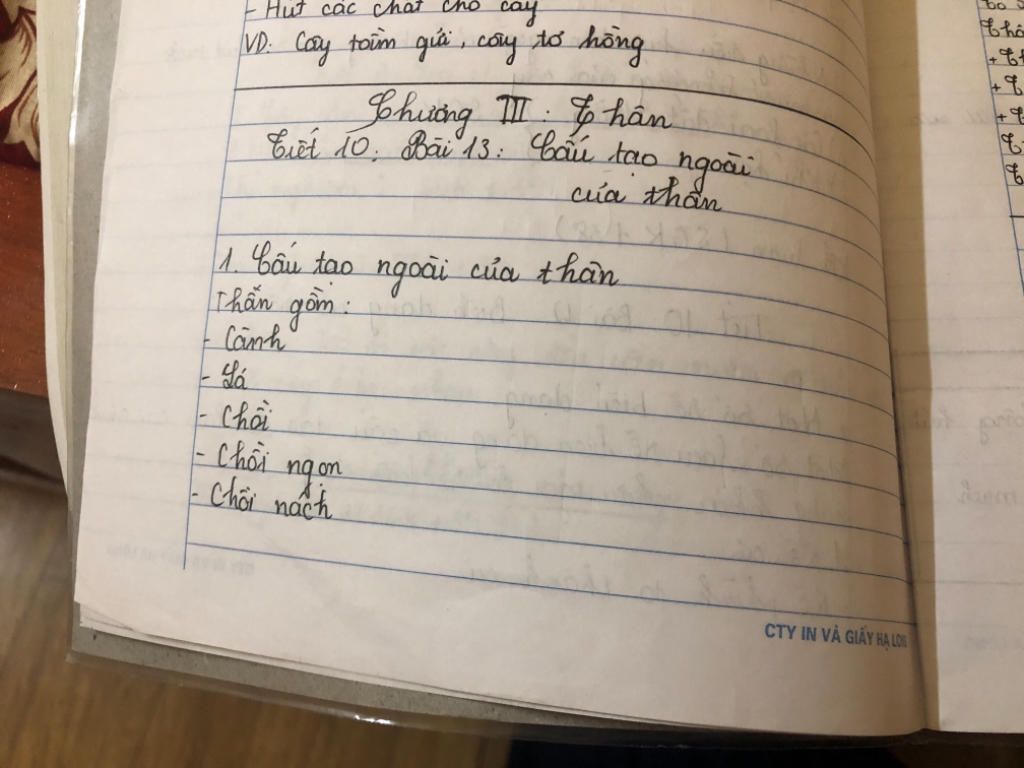 - Hút các chất cho cây
VD: Cây tầm gửi, cây tơ hồng
Chương III: Thân
Tiết 10: Bài 13: Cấu tạo ngoài
của thân
1. Cấu tạo ngoài của thân
Thân gồm:
- Cành
- Lá
- Chồi
- Chồi ngọn
- Chồi nách
CTY IN VÀ GIẤY HẠ LONG